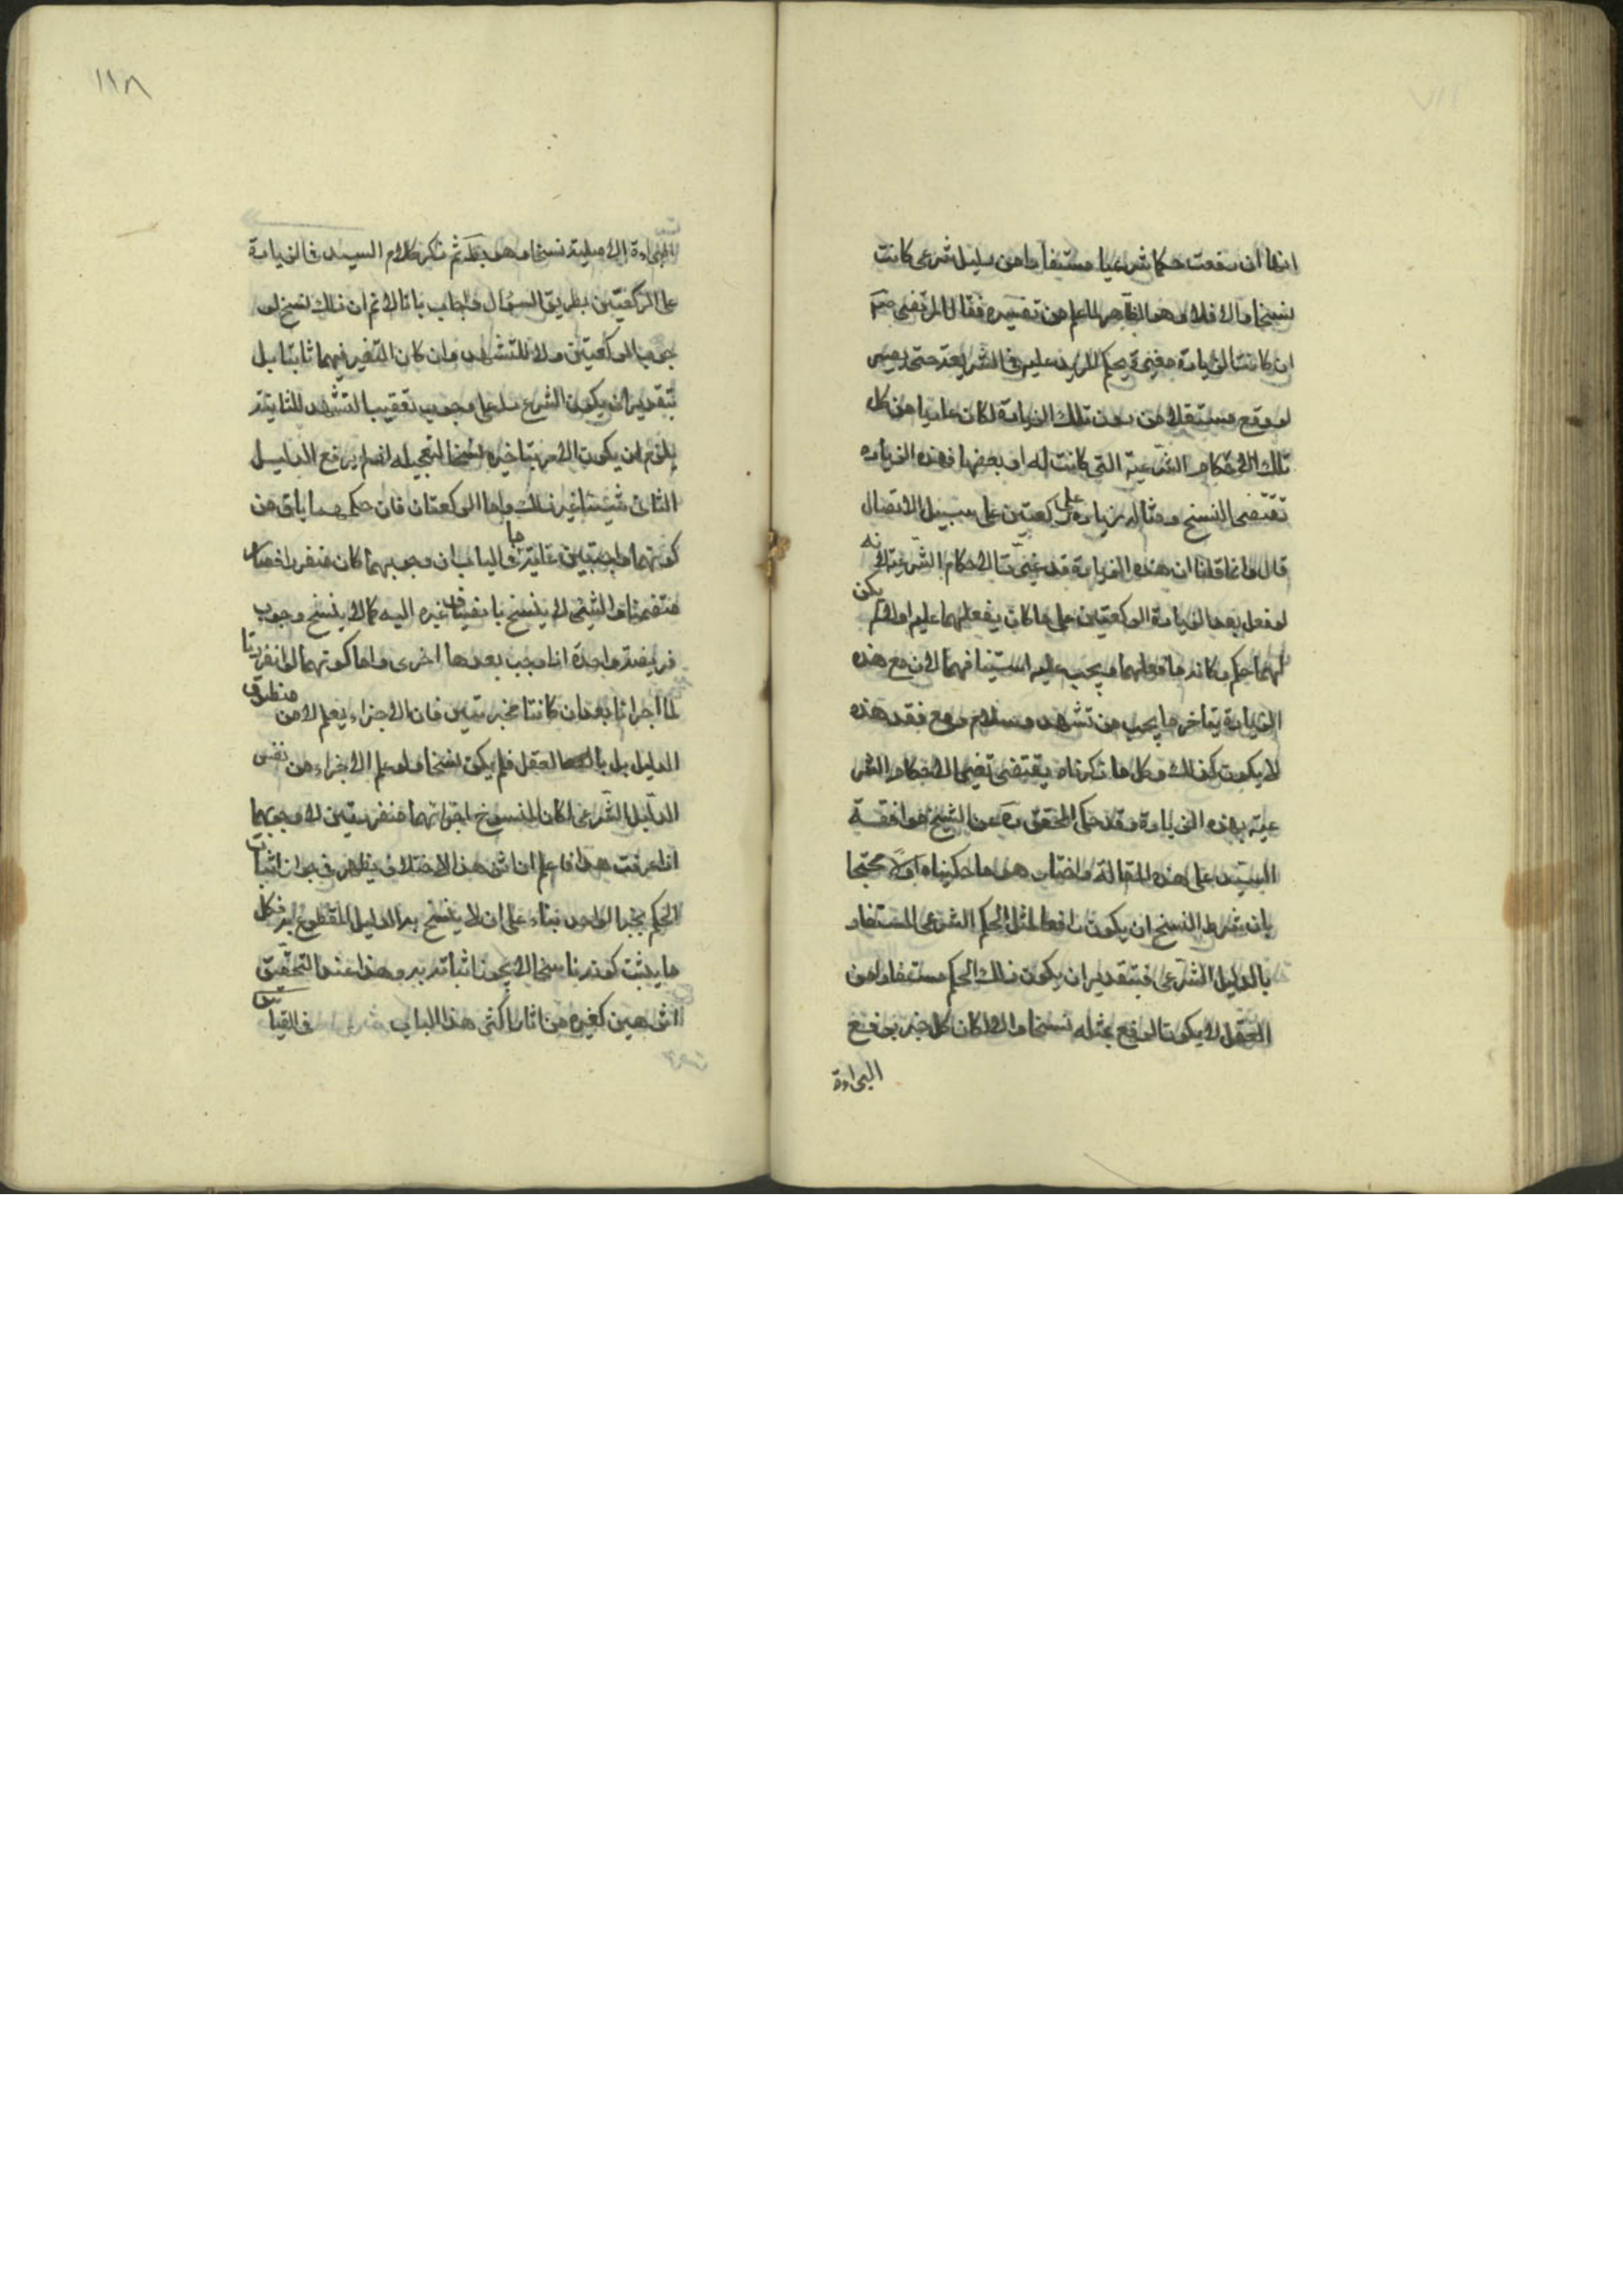 انها ان رفعت حكما شرعيا مستفادا من دليل شرعى كانت
نسخا والا فلا وهو الظاهر لما علم من تفسيره فقال المرتضى رضى
ان كانت الزيادة مغيرة بحكم المزيد عليه فى الشريعة حتى يصير
لو وقع مستقلا من دون تلك الزيادة لكان عاريا من كل
تلك الاحكام الشرعية التى كانت له او بعضها فهذه الزياده
تقتضى النسخ ومثاله زيادة ركعتين على سبيل الاتصال
قال وانما قلنا ان هذه الزيادة قد غيرت الاحكام الشرعية لانه
لو فعل بعد الزيادة الركعتين على ما كان يفعلهما عليه اولا لم يكن
لهما حكم وكانه ما فعلهما ويجب عليه استينافهما لان مع هذه
الزيادة يتاخر ما يجب من تشهد وسلام ومع فقد هذه
لا يكون كذلك وكل ما ذكرناه يقتضى تغير الاحكام الشر
عية بهذه الزيادة وقد حكى المحقق ره عن الشيخ موافقة
السيد على هذه المقالة واختار هو ما حكيناه اولا محتجا
بان شرط النسخ ان يكون رافعا لمثل الحكم الشرعى المستفاد
بالدليل الشرعى فبتقدير ان يكون ذلك الحكم مستفادا من
العقل لا يكون الرفع بمثله نسخا والا لكان كل خبر يرفع
البراءة
١١٨
البراءة الاصلية نسخا وهو بط ثم ذكر كلام السيد فى الزيادة
على الركعتين بطريق السؤال واجاب بانا لا نم ان ذلك نسخ لو
جوب الركعتين ولا للتشهد وان كان التغير فيهما ثابتا بل
بتقدير ان يكون الشرع دل على وجوب تعقيب التشهد للثانية
يلزم ان يكون الامر بتاخيره نسخا لتعجيله اذ لم يرفع الدليل
الثانى شيئا غير ذلك واما الركعتان فان حكمهما باق من
كونهما واجبتين غاية ما فى الباب ان وجوبهما كان منفردا فصار
منضما والشئ لا ينسخ بانضياف غيره اليه كما لا ينسخ وجوب
فريضة واحدة اذا وجب بعدها اخرى واما كونهما لو انفردتا
لما اجزاتا بعد ان كانتا مجزيتين فان الاجزاء يعلم لا من منطوق
الدليل بل بالعقل فلم يكن نسخا ولو علم الاجزاء من نفس
الدليل الشرعى لكان المنسوخ اجزائهما منفردتين لا وجوبهما
اذا عرفت هذا فاعلم ان اثر هذا الاختلاف يظهر فى جواز اثبات
الحكم بخبر الواحد بناء على ان لا ينسخ به الدليل المقطوع به فكل
ما يثبت كونه ناسخا لا يجوز اثباته به وهذا عند التحقيق
اثر هين كغيره من اثار اكثر هذا الباب فى القياس